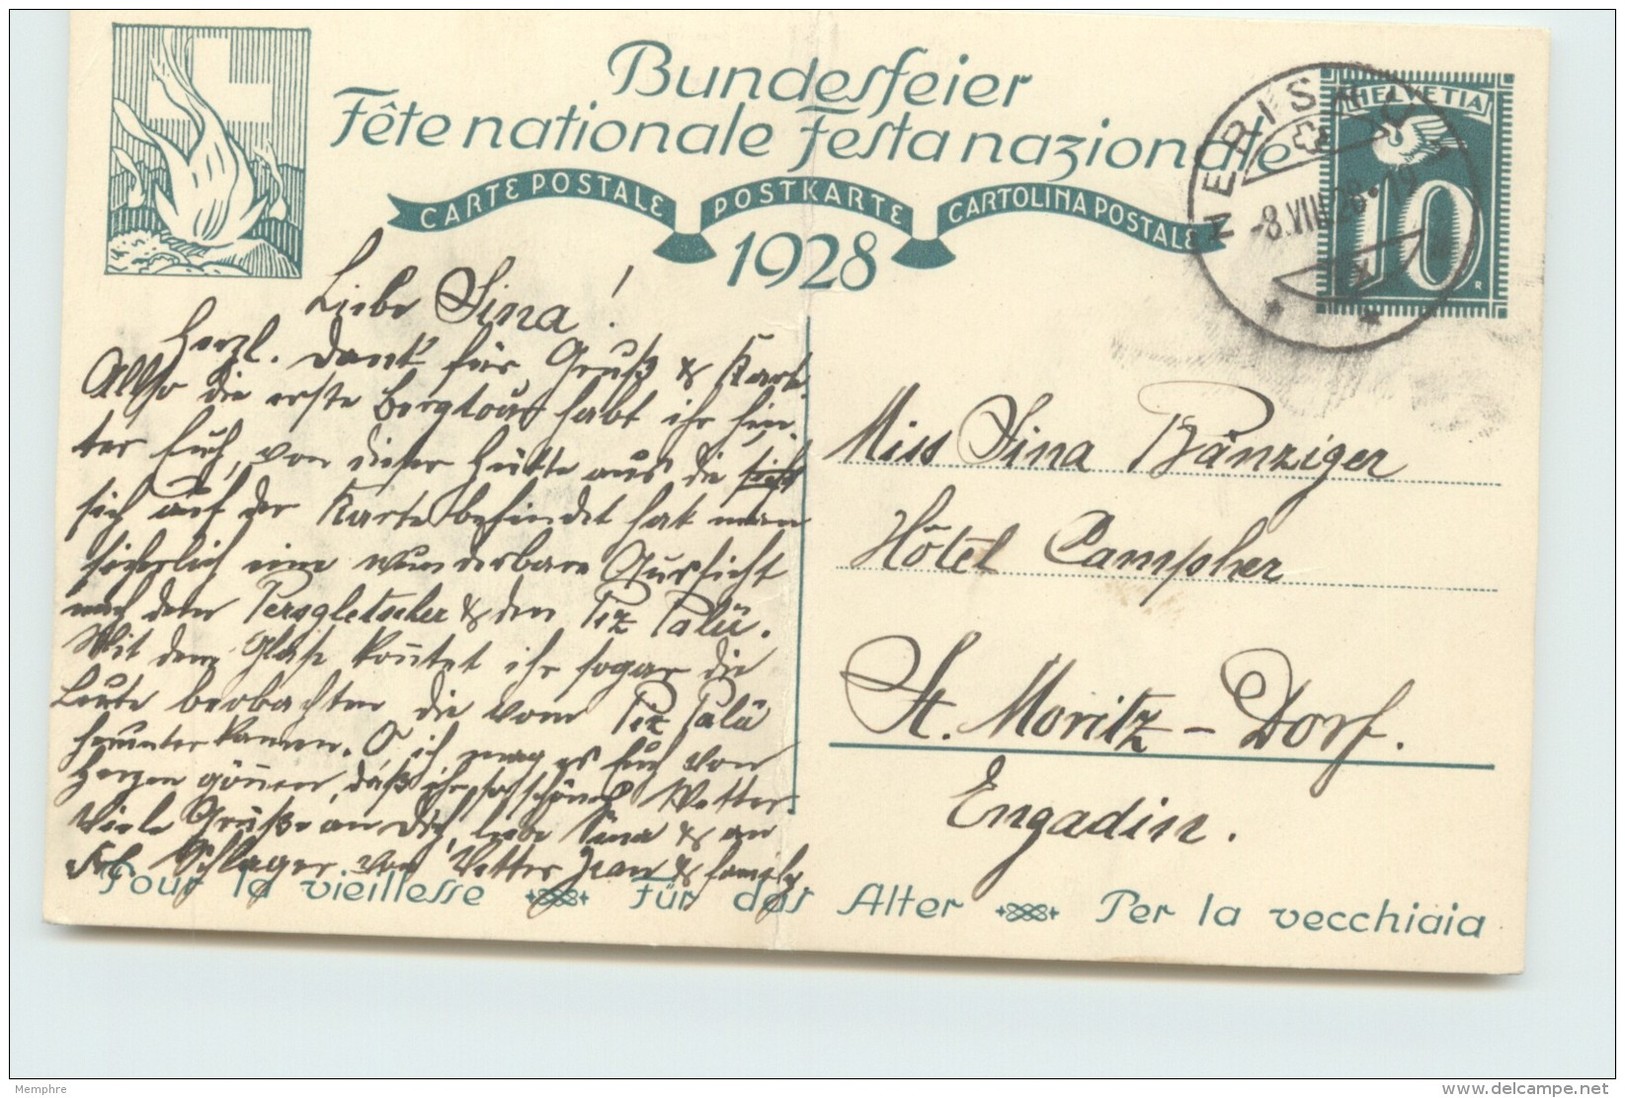 Bundesfeier
Fête nationale Festa nazionale
CARTE POSTALE POSTKARTE CARTOLINA POSTALE
1928
HELVETIA
10
R
HERISAU
-8.VIII.28•19
Liebe Sina!
Herzl. Dank für Gruß & Karte.
Also die erste Bergtour habt ihr hin-
ter Euch, von dieser Hütte aus die
sich auf der Karte befindet hat man
sicherlich eine wunderbare Aussicht
nach dem Persgletscher & den Piz Palü.
Mit dem Glase könntet ihr sogar die
Leute beobachten die vom Piz Palü
herunter kamen. O ich mag es Euch von
Herzen gönnen, daß ihr so schönes Wetter.
Viele Grüße an Dich, liebe Sina & an
Frl. Schlager von Vetter Jean & family.
Miss Sina Bänziger
Hôtel Campher
St. Moritz - Dorf.
Engadin.
Pour la vieillesse Für das Alter Per la vecchiaia
Memphre
www.delcampe.net